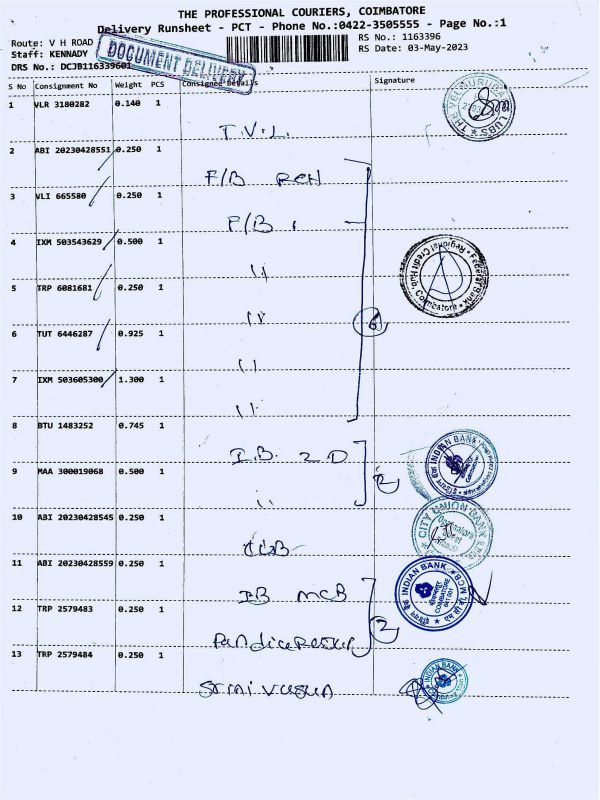 THE PROFESSIONAL COURIERS, COIMBATORE
Delivery Runsheet - PCT - Phone No.:0422-3505555 - Page No.:1
Route: V H ROAD
Staff: KENNADY
DRS No.: DCJB116339601
DOCUMENT DELIVERY
RS No.: 1163396
RS Date: 03-May-2023
S No Consignment No Weight PCS Consignee Details Signature
1 VLR 3180282 0.140 1
T.V.L.
2 ABI 20230428551 0.250 1
F/B RCH
3 VLI 665580 0.250 1
F/B
4 IXM 503543629 0.500 1
"
5 TRP 6081681 0.250 1
"
6 TUT 6446287 0.925 1
"
7 IXM 503605300 1.300 1
"
6
Federal Bank Regional Credit Hub, Coimbatore
8 BTU 1483252 0.745 1
I.B. 2D
9 MAA 300019068 0.500 1
"
2
INDIAN BANK
10 ABI 20230428545 0.250 1
CUB
CITY UNION BANK
11 ABI 20230428559 0.250 1
IB MCB
INDIAN BANK MCB
COIMBATORE
641 001
12 TRP 2579483 0.250 1
2
13 TRP 2579484 0.250 1
INDIAN BANK